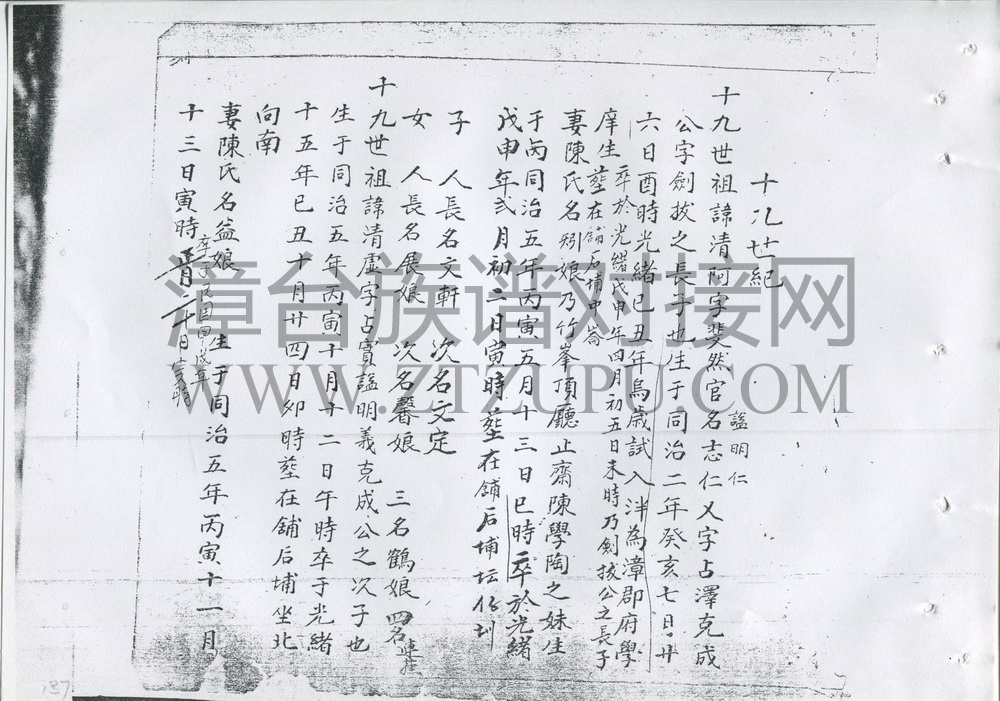 十八世紀
十九世祖諱清阿字斐然官名志仁又字占澤克成
謚明仁
公字劍拔之長子也生于同治二年癸亥七月廿
六日酉時光緒己丑年烏歲試入泮為漳郡府學
庠生葬在舖后埔中崙
卒於光緒戊申年四月初五日未時乃劍拔公之長子
妻陳氏名娘乃竹峯頂廳止齋陳學陶之妹生
于丙同治五年丙寅五月十三日巳時卒於光緒
戊申年弍月初二日寅時葬在舖后埔坛仔圳
子 人長名文軒 次名文定
女 人長名展娘 次名馨娘 三名鶴娘 四名
十九世祖諱清虛字占實謚明義克成公之次子也
生于同治五年丙寅十月十二日午時卒于光緒
十五年己丑十月廿四日卯時葬在舖后埔坐北
向南
妻陳氏名益娘 生于同治五年丙寅十一月
十三日寅時
卒于民國
漳台族谱对接网
WWW.ZTZUPU.COM
137